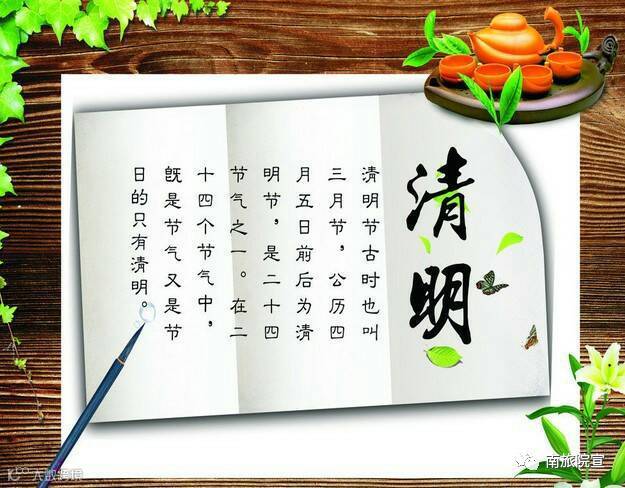 清明
清明节古时也叫
三月节，公历四
月五日前后为清
明节，是二十四
节气之一。在二
十四个节气中，
既是节气又是节
日的只有清明。
南旅院宣